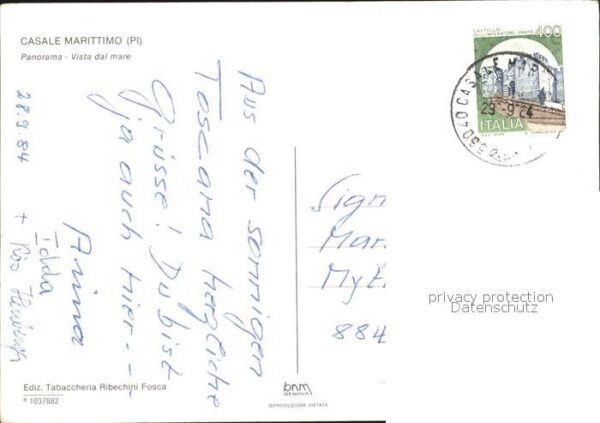 CASALE MARITTIMO (PI)
Panorama - Vista dal mare
28.9.84
Aus der sonnigen
Toscana herzliche
Grüsse! Du bist
ja auch hier - - -
Anna
Edda
+
CASTELLO
DELL'IMPERATORE - PRATO
400
ITALIA
56040 CASALE MAR
29-9
Sign
Mar
My
884
privacy protection
Datenschutz
Ediz. Tabaccheria Ribechini Fosca
* 1037882
bnm
GENOVA
RIPRODUZIONE VIETATA